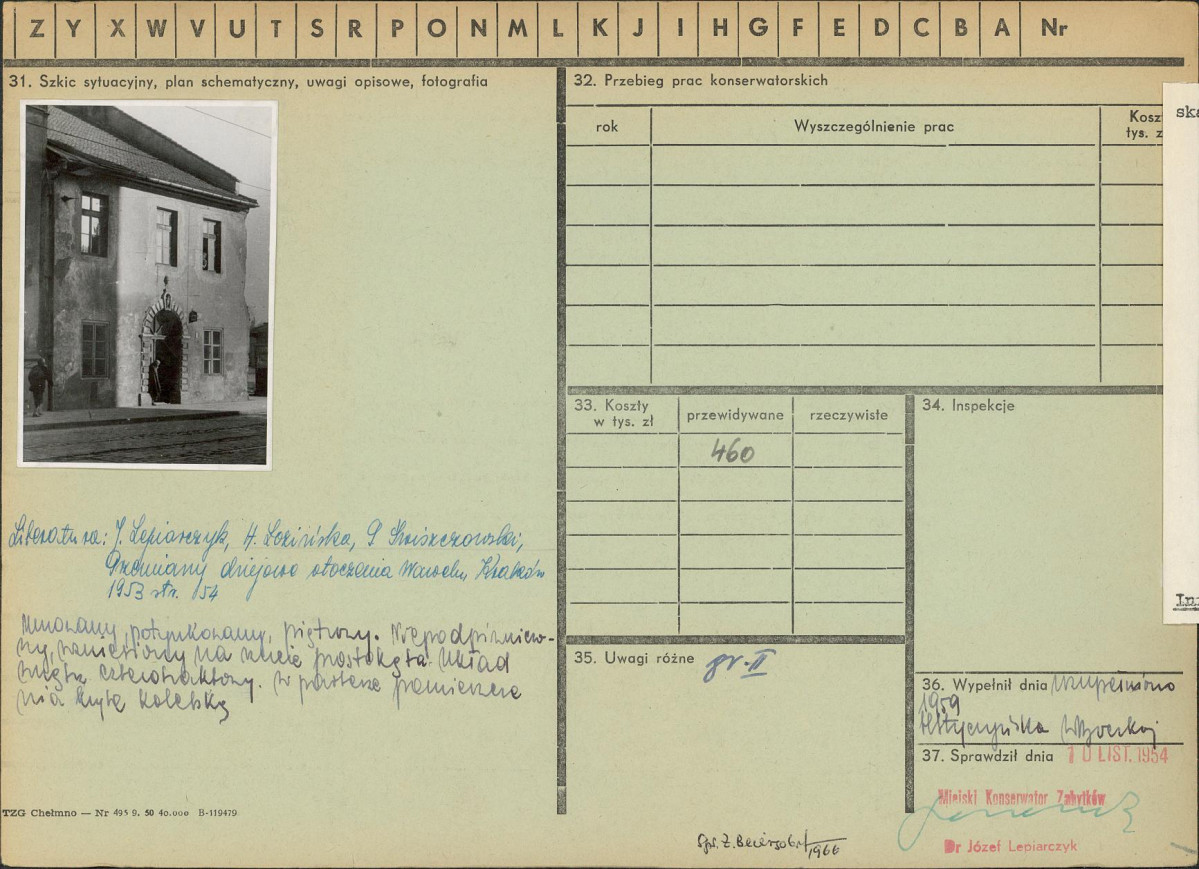 Z Y X W V U T S R P O N M L K J I H G F E D C B A Nr
31. Szkic sytuacyjny, plan schematyczny, uwagi opisowe, fotografia
Literatura: J. Lepiarczyk, H. Łozińska, P Świszczowski,
Przemiany dziejowe otoczenia Wawelu, Kraków
1953 str. 154
Murowany, potynkowany, piętrowy. Niepodpiwniczo-
ny, na rzucie prostokąta. Układ
wnętrz czterotraktowy. W parterze pomieszcze
nia kryte kolebką
TZG Chełmno — Nr 495 9. 50 40.000 B-119479
32. Przebieg prac konserwatorskich
rok
Wyszczególnienie prac
Koszt
tys. z
33. Koszty
w tys. zł
przewidywane
rzeczywiste
460
34. Inspekcje
35. Uwagi różne
gr. II
36. Wypełnił dnia uzupełniono
1959
37. Sprawdził dnia 10 LIST. 1954
Miejski Konserwator Zabytków
Dr Józef Lepiarczyk
Spr. Z. Beiersdorf
1966
ska